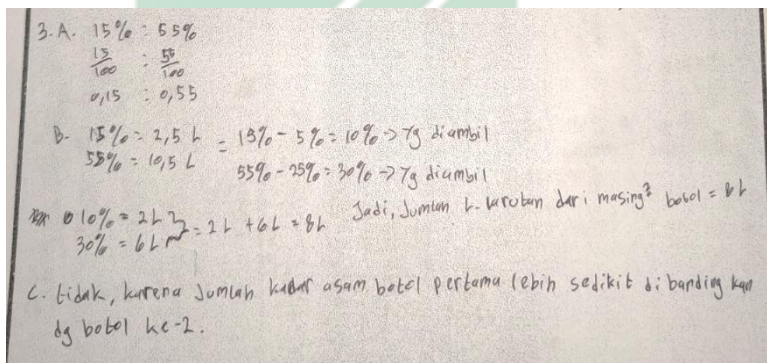 3. A. 15% : 55%
15/100 : 55/100
0,15 : 0,55
B. 15% = 2,5 L = 15% - 5% = 10% -> yg diambil
55% = 10,5 L 55% - 25% = 30% -> yg diambil
10% = 2L } = 2L + 6L = 8L Jadi, Jumlah L. larutan dari masing² botol = 8L
30% = 6L
C. tidak, karena Jumlah kadar asam botol pertama lebih sedikit di banding kan
dg botol ke-2.